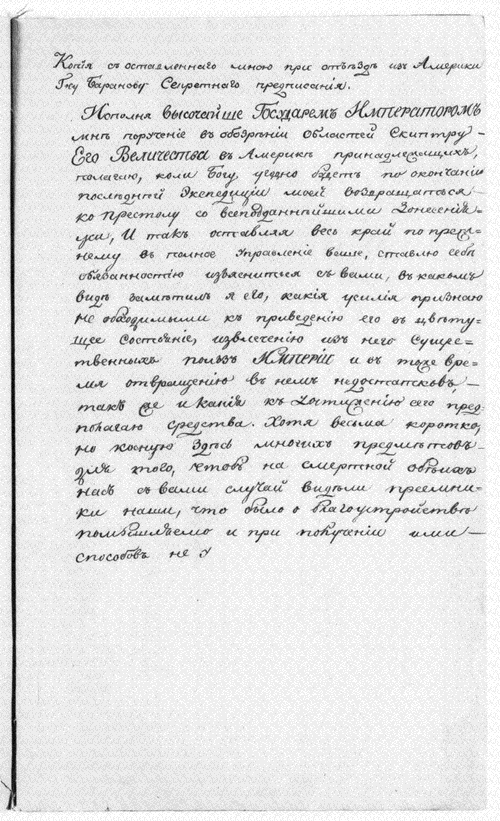 Копія съ оставленнаго мною при отъѣздѣ изъ Америки
Гну Баранову Секретнаго предписанія.
Исполня Высочайше Государемъ Императоромъ
мнѣ порученіе въ обозрѣніи Областей Скиптру
Его Величества въ Америкѣ принадлежащихъ,
полагаю, коли Богу, угодно будетъ по окончаніи
послѣдней Экспедиціи моей возвращаться
ко престолу со всеподданнѣйшими Донесенія-
ми, И такъ оставляя весь край по преж-
нему въ полное Управленіе ваше, ставлю себѣ
обязанностію изъясниться съ вами, въ какомъ
видѣ замѣтилъ я его, какія усилія признаю
необходимыми къ приведенію его въ цвѣту-
щее состояніе, извлеченію изъ него суще=
ственныхъ пользъ Имперіи и въ тоже вре=
мя отвращенію въ немъ недостатковъ,
такъ же и какія къ достиженію сего пред
полагаю средства. Хотя весьма коротко,
но коснусь здѣсь многихъ предмѣтовъ
для того, чтобъ на смертной обѣихъ
насъ съ вами случай видѣли преемни=
ки наши, что было о благоустройствѣ
помышляемо и при полученіи ими
способовъ не у